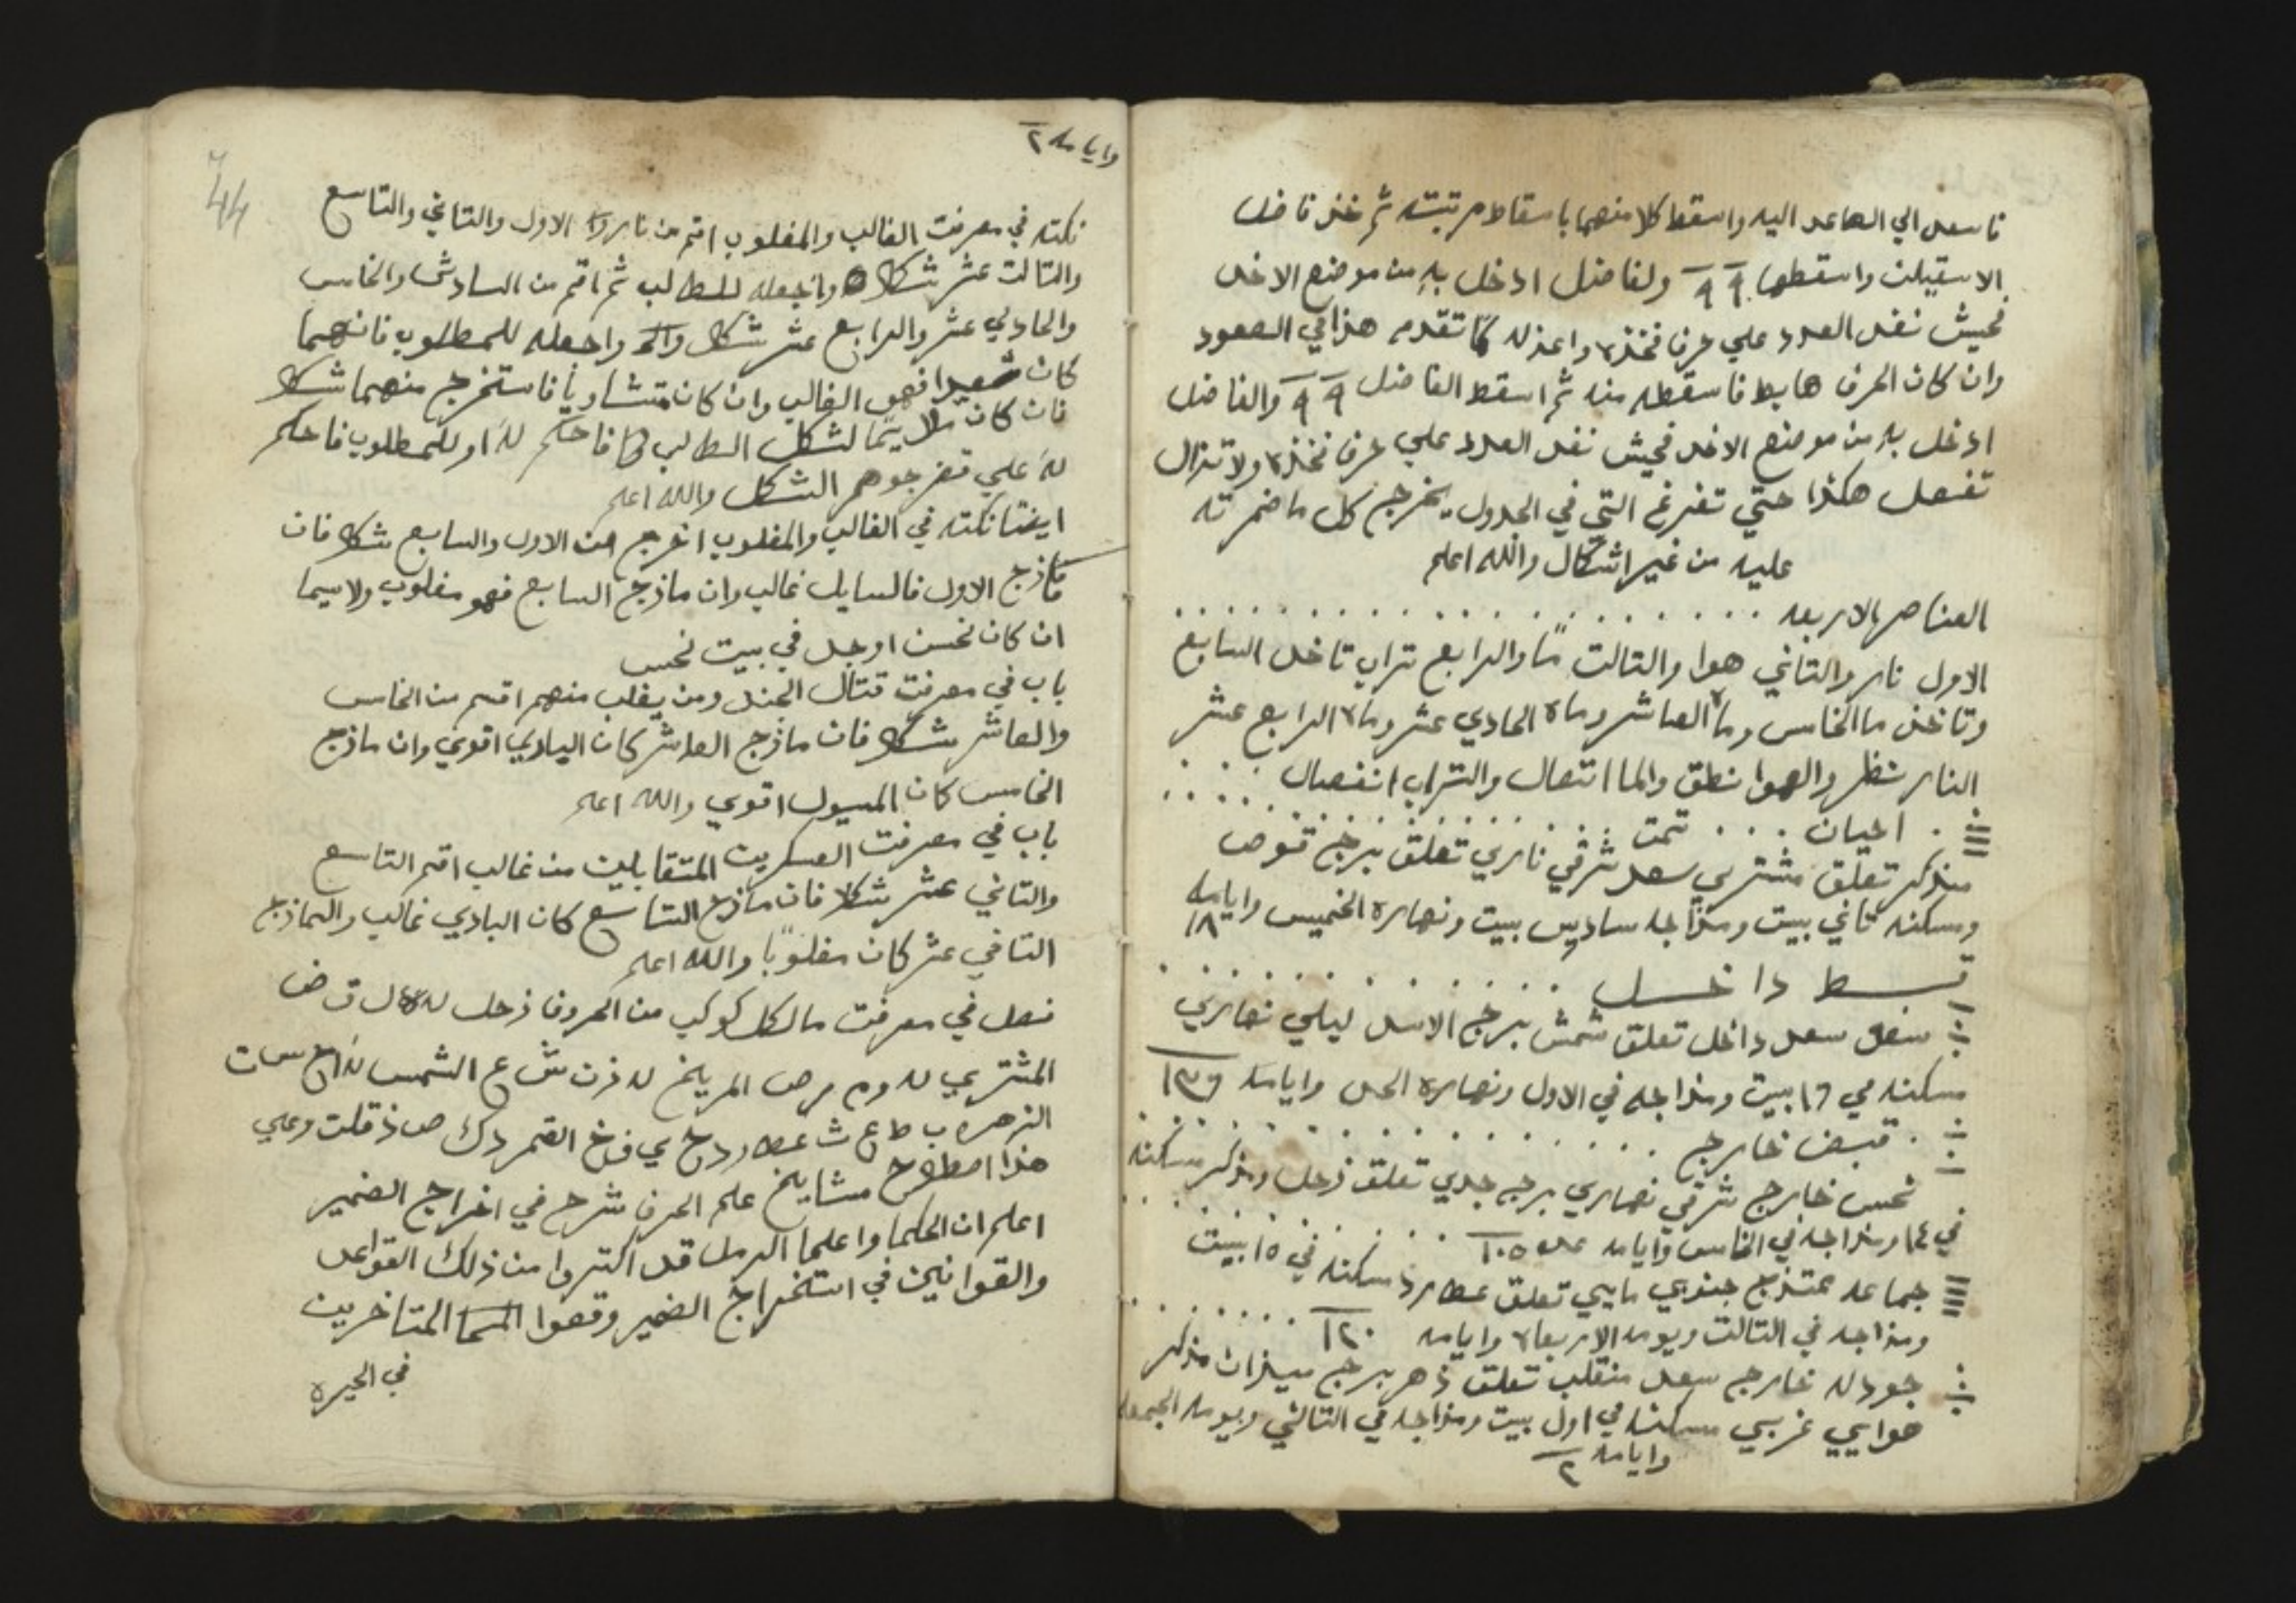 فاسعد الي الصاعد اليه واسقط كلا منهما باسقاط مرتبته ثم خذ فاضل
واسقطها ٩٩ ولفاضل ادخل به من موضع الاخد
فحيث نفد العدد علي حرف فخذه واعزله كما تقدم هذا في الصعود
وان كان الحرف هابط فاسقطه منه ثم اسقط الفاضل ٩٩ والفاضل
ادخل به من موضع الاخد فحيش نفد العدد علي حرف فخذه ولا تزال
تفعل هكذا حتي تفرغ التي في الجدول يخرج كل ما ضمرته
عليه من غير اشكال والله اعلم
العناصر الاربعه
الاول نار والتاني هوا والتالت مًا والرابع تراب تاخد السابع
وتاخذ ما الخامس وماء العاشر وماه الحادي عشر وماه الرابع عشر
النار نظر والهوا نطق والما اتصال والتراب انفصال
احيان تمت
منذكر تعلق مشتري سعد شرقي ناري تعلق برج قوص
ومسكنه تاني بيت ومزاجه سادس بيت ونهاره الخميس وايامه ١٨
قبسط داخل
سعد داخل تعلق شمش برج الاسد ليلي نهاري
مسكنه في ١٦ بيت ومزاجه في الاول ونهاره الحد وايامه ١٣٦
قبض خارج
نحس خارج شرقي نهاري برج جدي تعلق زحل ومذكر مسكنه
في ١٤ ومزاجه في الخامس وايامه ١٠٥
جماعه ممتزج جنوبي مايي تعلق عطارد مسكنه في ١٥ بيت
ومزاجه في التالت ويومه الاربعاء وايامه ١٢٠
جودله خارج سعد منقلب تعلق زهر برج ميزان مذكر
هوايي غربي مسكنه في اول بيت ومزاجه في التالتي ويومه الجمعه
وايامه ٢
وايامه ٢
44
نكته في معرفت الغالب والمغلوب اقم من نار الاول والتاني والتاسع
والتالت عشر شكلا واجعله للطالب ثم اقم من السادش والخامس
والحادي عشر والرابع عشر شكل واجعله للمطلوب فانهما
كان فهو الغالب وان كان متشاويًا فاستخرج منهما شكلا
فان كان لشكل الطالب فاحكم له او للمطلوب فاحكم
له علي الشكل والله اعلم
ايضا نكته في الغالب والمغلوب اخرج من الاول والسابع شكلا فان
مازج الاول فالسايل غالب وان مازج السابع فهو مغلوب ولاسيما
ان كان نحس اوحل في بيت نحس
باب في معرفت قتال الجند ومن يغلب منهم اقسم من الخامس
والعاشر شكلا فان مازج العاشر كان البادي اقوي وان مازج
الخامس كان المسول اقوي والله اعلم
باب في معرفت العسكرين المتقابلين من غالب اقم التاسع
والتاني عشر شكلا فان مازج التاسع كان البادي غالب
التاني عشر كان مغلوبًا والله اعلم
فصل في معرفت ما لكل كوكب من الحروف زحل له ل ق ض
المشتري له و م ر ص المريخ له ز ن ش ع الشمس له س ت
الزهره ب ط ع ث عطارد ح ي ف خ القمر د ك ص ذ قلت وعلي
هذا اصطلاح مشايخ علم الحرف شرح في اخراج الضمير
اعلم ان الحكما واعلما الرمل قد اكتروا من ذلك القواعد
والقوانين في استخراج الضمير وقعوا المتاخرين
في الحيره